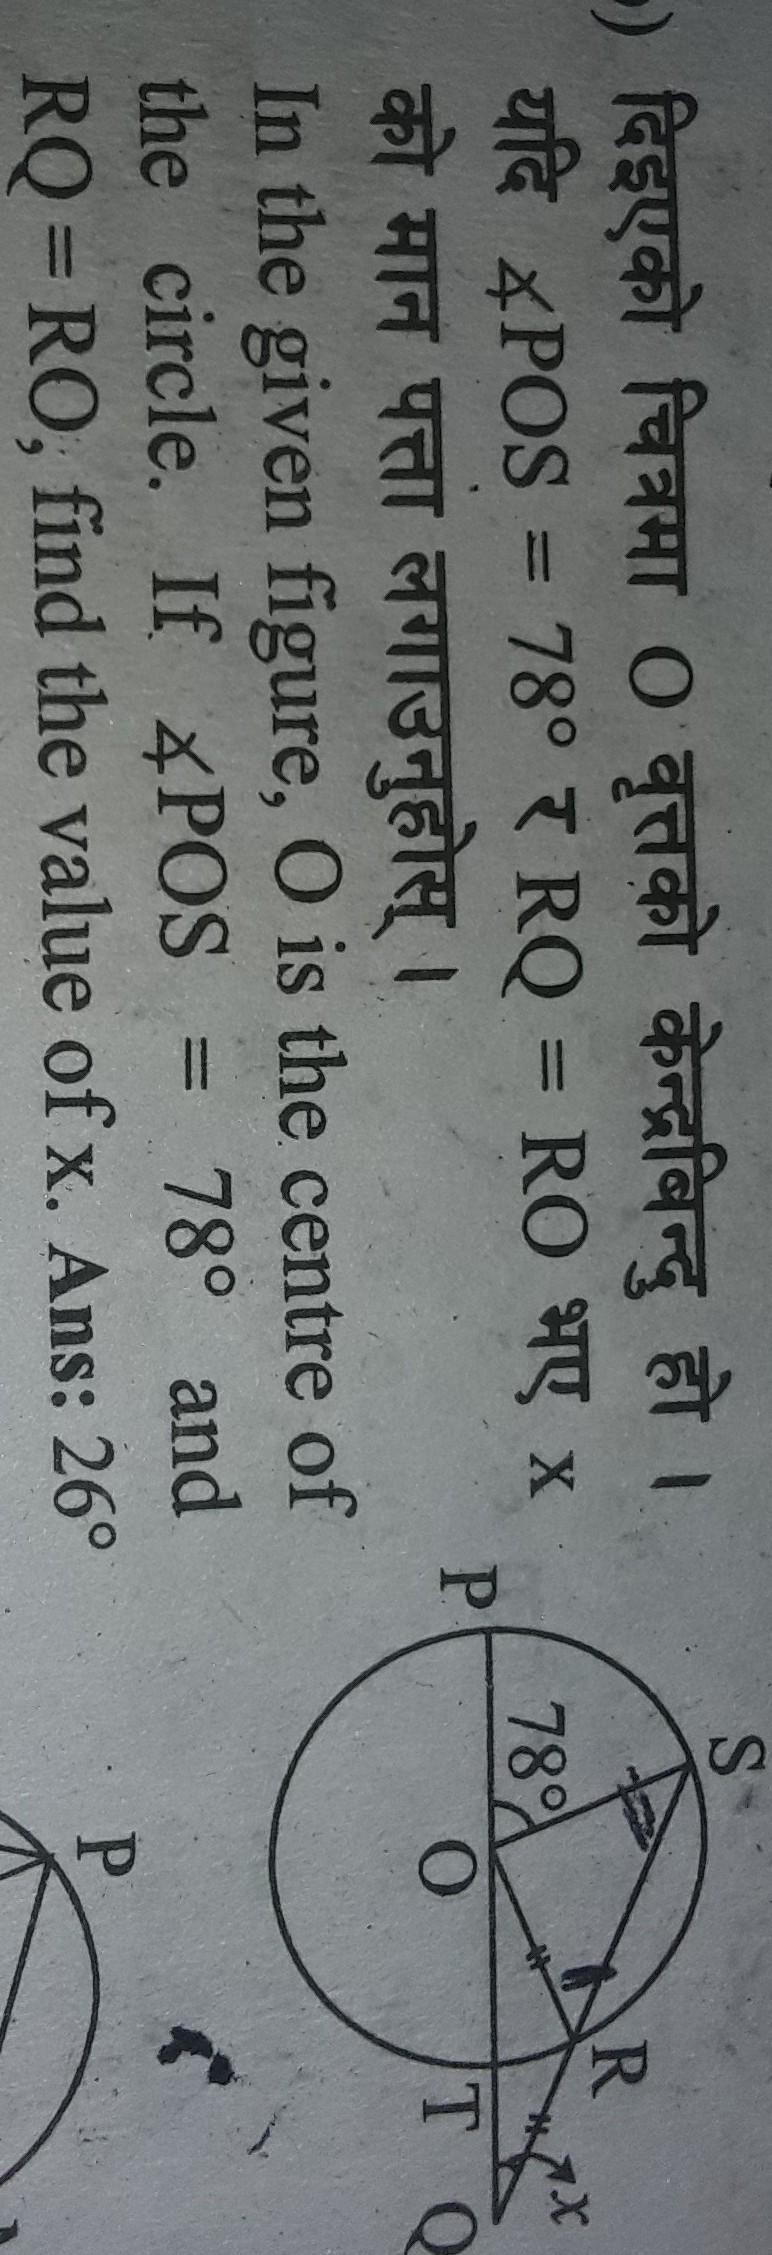 ) दिइएको चित्रमा O वृत्तको केन्द्रबिन्दु हो ।
यदि ∡POS = 78° र RQ = RO भए x
को मान पत्ता लगाउनुहोस् ।
In the given figure, O is the centre of
the circle. If ∡POS = 78° and
RQ = RO, find the value of x. Ans: 26°
S
R
x
78°
P
O
T
Q
P